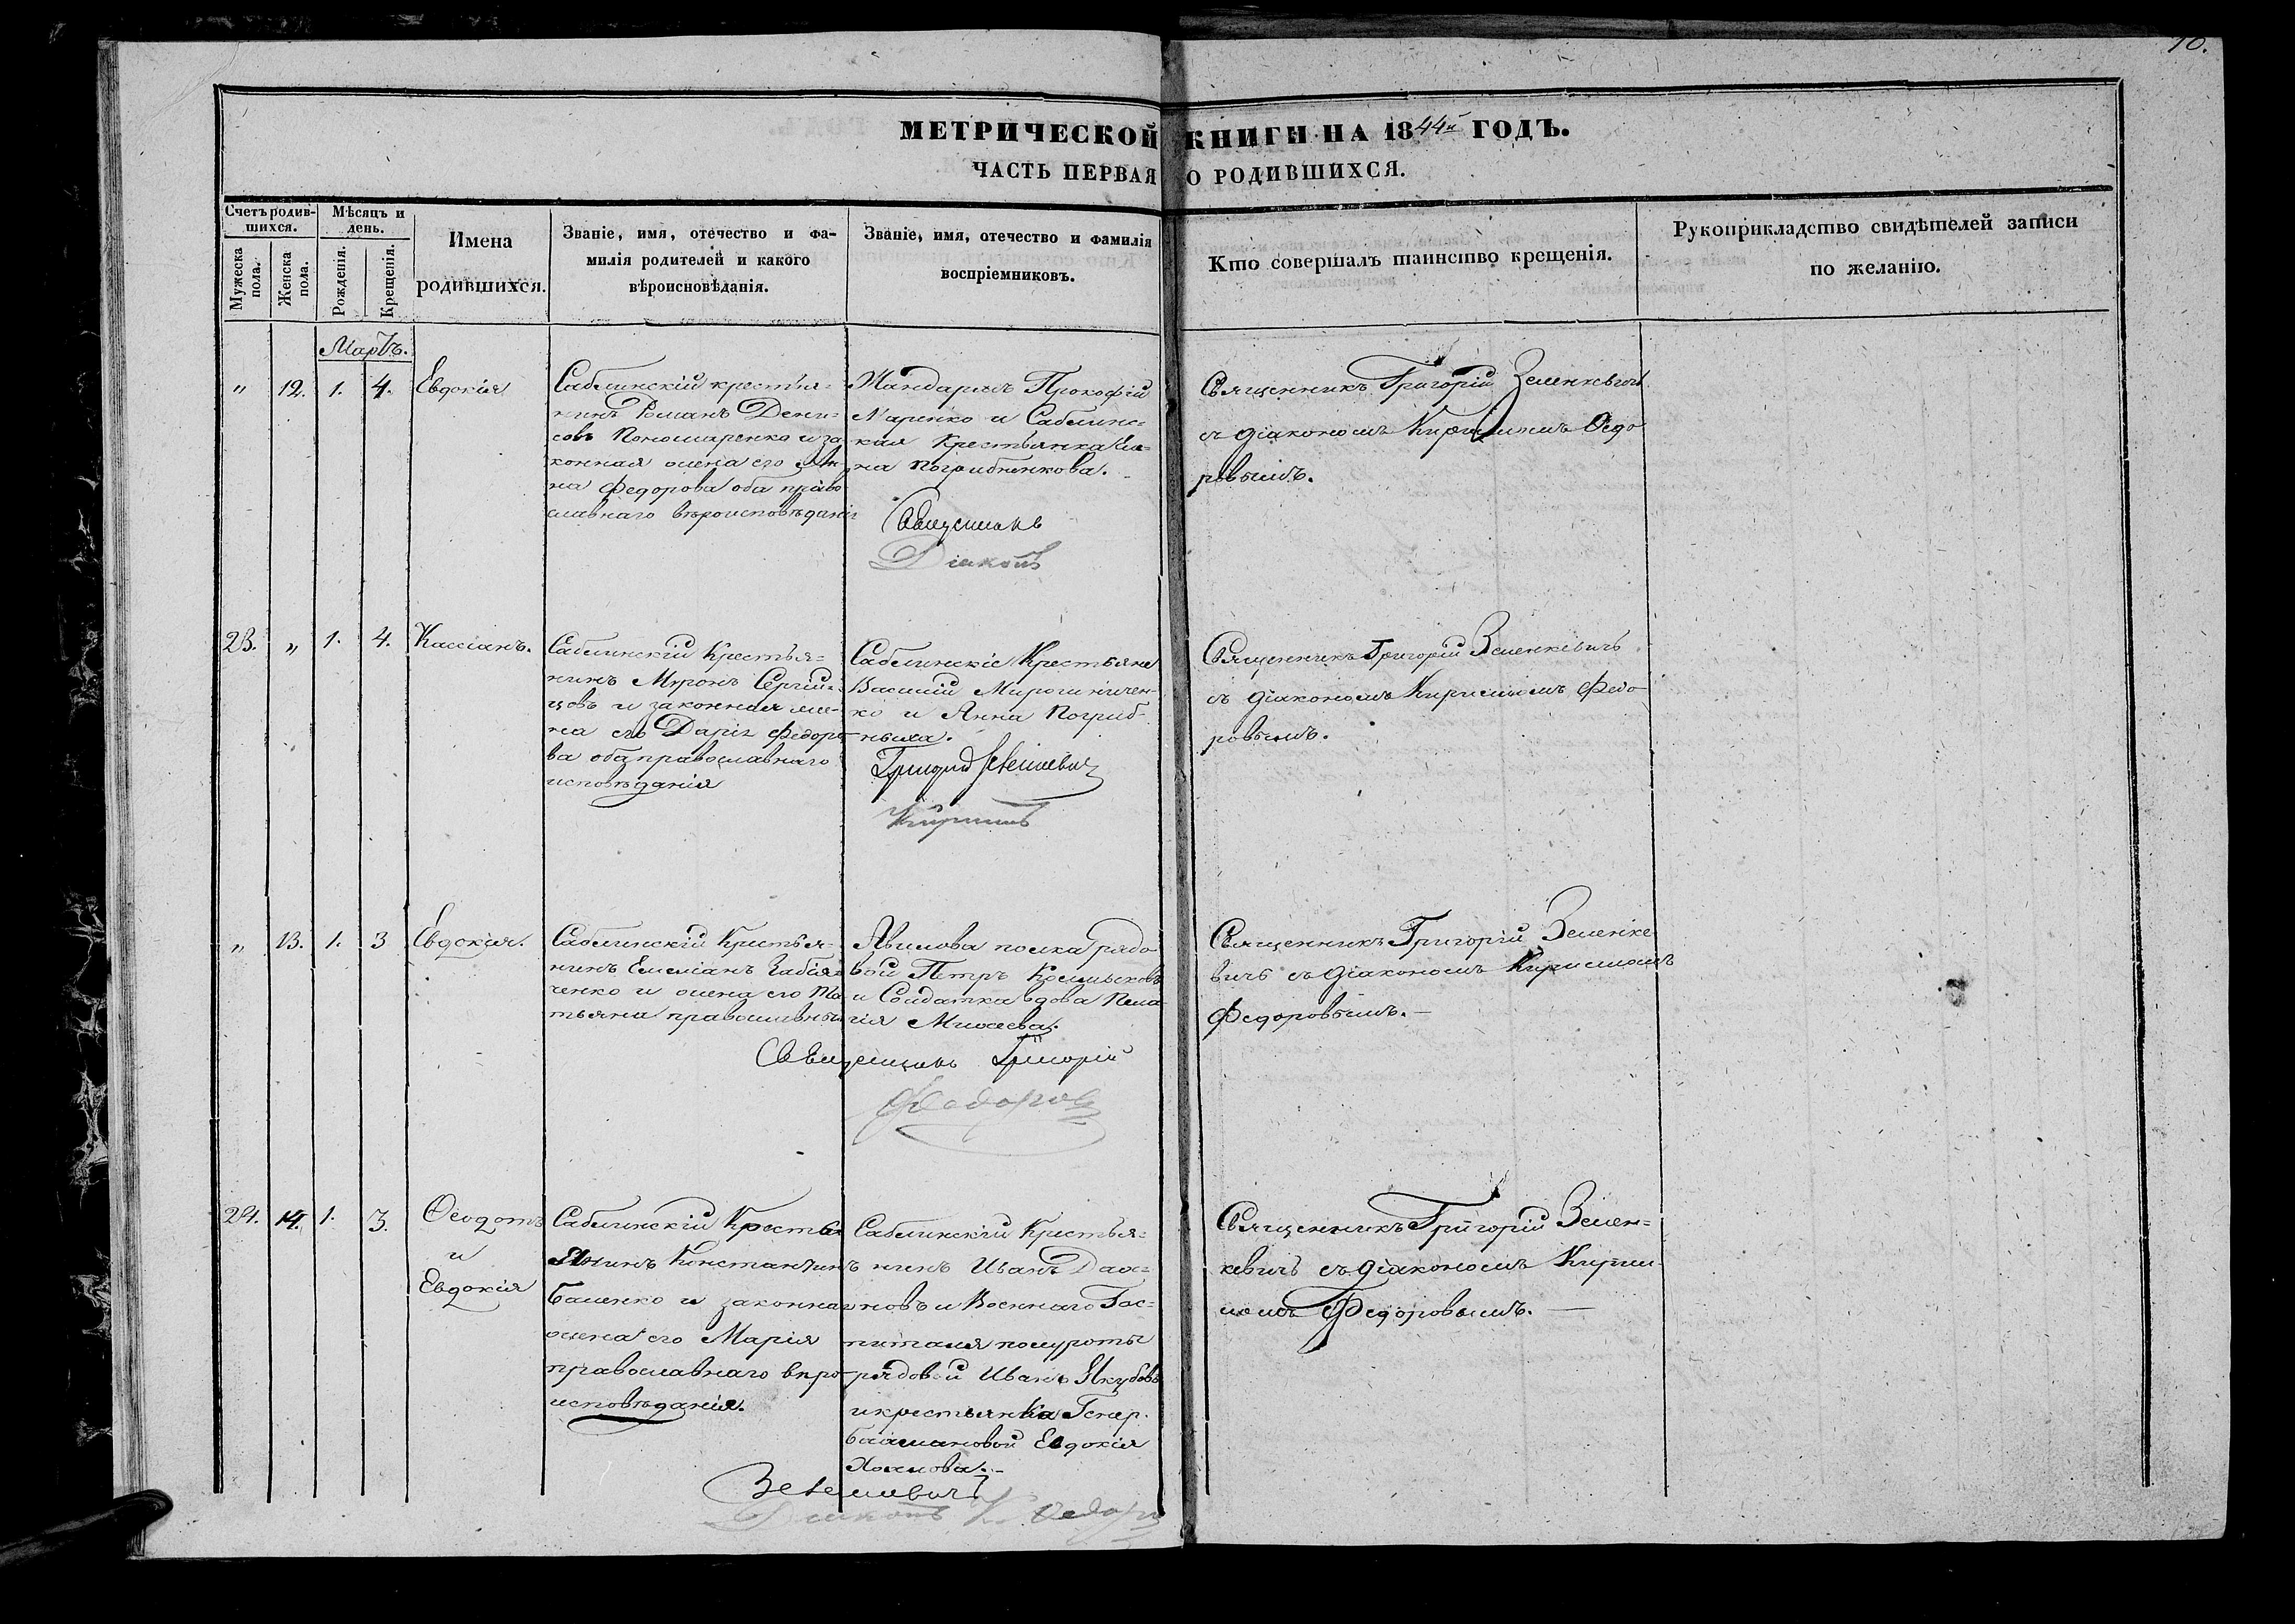 10.
МЕТРИЧЕСКОЙ КНИГИ НА 1844й ГОДЪ.
ЧАСТЬ ПЕРВАЯ О РОДИВШИХСЯ.
Счетъ родив-
шихся.
Мужеска пола.
Женска пола.
Мѣсяцъ и
день.
Рожденія.
Крещенія.
Имена
родившихся.
Званіе, имя, отечество и фа-
милія родителей и какого
вѣроисповѣданія.
Званіе, имя, отечество и фамилія
воспріемниковъ.
Кто совершалъ таинство крещенія.
Рукоприкладство свидѣтелей записи
по желанію.
Мартъ.
" 12. 1. 4. Евдокія
Саблинскій крестья-
нинъ Романъ Дени-
совъ Пономаренко и за
конная жена его Ан
на Федорова оба право
славнаго вѣроисповѣданія
Жандармъ Прокофій
Маренко и Саблинс-
кая Крестьянка
на Погрибненкова.
Священникъ
Діаконъ
Священникъ Григорій Зеленкевичъ
съ діакономъ Кириломъ Ѳедо
ровымъ.
23. " 1. 4. Кассіанъ.
Саблинскій Крестья-
нинъ Миронъ Сергій-
цовъ и законная же-
на его Дарія Федоро
ва оба православнаго
исповѣданія
Саблинскіе Крестьяне
Василій Мирошничен-
ко и Анна Погриб-
ныха.
Григорій Зеленкевичъ
Кирилъ
Священникъ Григорій Зеленкевичъ
съ діакономъ Кириломъ Федо
ровымъ.
" 13. 1. 3 Евдокія.
Саблинскій Крестья-
нинъ Емеліанъ
ченко и жена его Та
тьяна православные
полка рядо
вой Петръ
и Солдатка вдова Пела
гія Мисаева.
Священникъ Григорій
Федоровъ
Священникъ Григорій Зеленке
вичъ съ діакономъ Кириломъ
Федоровымъ.—
24. 14. 1. 3. Ѳеодотъ
и
Евдокія
Саблинскій Крестья
янинъ Константинъ
Баленко и законная
жена его Марія
православнаго вѣро
исповѣданія.
Саблинскій Крестья-
нинъ Иванъ Дах-
новъ и Военнаго Гос-
питаля полуроты
рядовой Иванъ Якубовъ
и крестьянка Генер.
Башмановой Евдокія
Зеленкевичъ
Діаконъ К. Федоровъ
Священникъ Григорій Зелен-
кевичъ съ діакономъ Кири
ломъ Федоровымъ.—